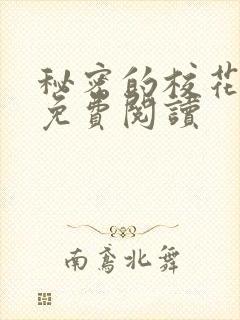 秘密的校花
免費閱讀
南鳶北舞